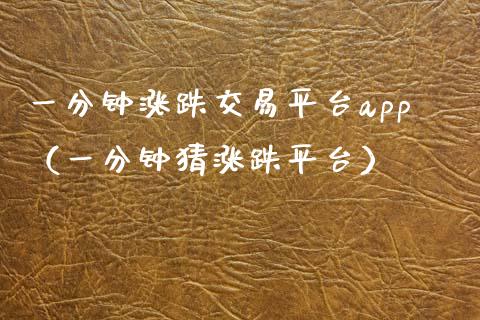 一分钟涨跌交易平台app
（一分钟猜涨跌平台）